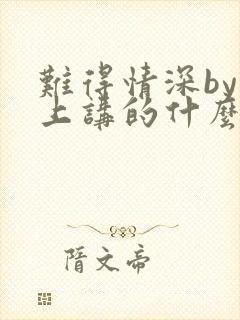 難得情深by
上講的什麼
隋文帝